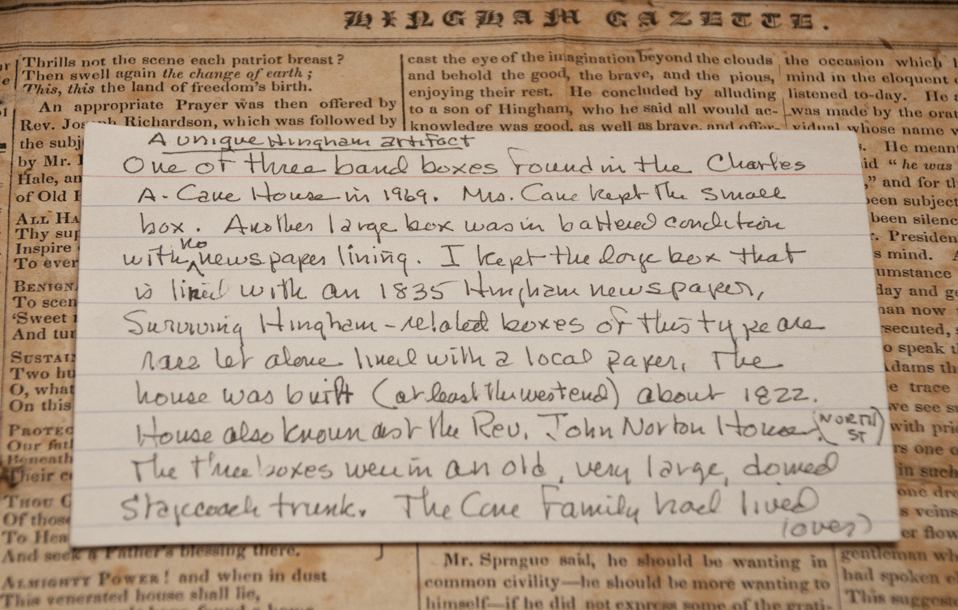 HINGHAM GAZETTE.
Thrills not the scene each patriot breast?
Then swell again the change of earth;
This, this the land of freedom's birth.
An appropriate Prayer was then offered by
Rev. Joseph Richardson, which was followed by
the subj
by Mr. 
Hale, an
of Old 
ALL HA
Thy sup
Inspire
To ever
BENIGN
To scen
'Sweet
And tur
SUSTAI
Two hu
O, what
On this
PROTEC
Our fat
Beneath
Their c
THOU G
Of those
To Hea
And seek a Father's blessing there.
ALMIGHTY POWER! and when in dust
This venerated house shall lie,
cast the eye of the imagination beyond the clouds
and behold the good, the brave, and the pious,
enjoying their rest. He concluded by alluding
to a son of Hingham, who he said all would ac-
knowledge was good, as well as brave, and
Mr. Sprague said, he should be wanting in
common civility—he should be more wanting to
himself—if he did not express some of the grati-
the occasion which
mind in the eloquent
listened to-day. He
was made by the orat
vidual whose name
He mean
"he was
" and for th
been subject
been silenc
r. Presiden
s mind.
umstance
day and ge
han now
secuted,
o speak th
dams th
e trace
we see s
with pri
rs one o
in such
one dre
s veins
er flow
gentleman wh
had spoken
This suggest
A unique Hingham artifact
One of three band boxes found in the Charles
A. Cane House in 1969. Mrs. Cane kept the small
box. Another large box was in battered condition
with no newspaper lining. I kept the large box that
is lined with an 1835 Hingham newspaper,
Surviving Hingham-related boxes of this type are
rare let alone lined with a local paper. The
house was built (at least the west end) about 1822.
House also known as the Rev. John Norton House, (NORTH ST)
The three boxes were in an old, very large, domed
stagecoach trunk. The Cane Family had lived
(over)